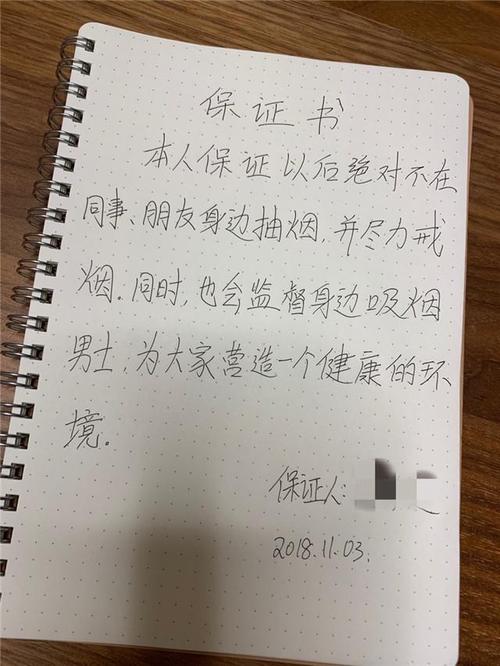 保证书
本人保证以后绝对不在
同事、朋友身边抽烟,并尽力戒
烟.同时,也会监督身边吸烟
男士,为大家营造一个健康的环
境.
保证人:
2018.11.03.